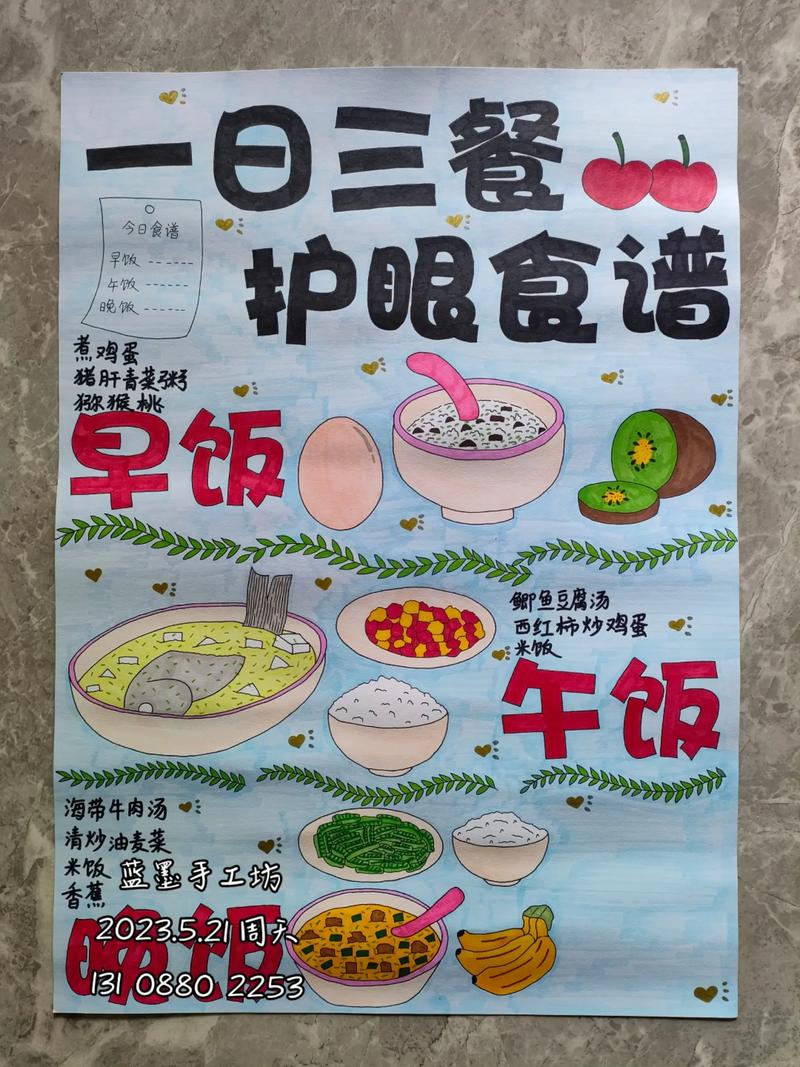 一日三餐
护眼食谱
今日食谱
早饭
午饭
晚饭
煮鸡蛋
猪肝青菜粥
猕猴桃
早饭
鲫鱼豆腐汤
西红柿炒鸡蛋
米饭
午饭
海带牛肉汤
清炒油麦菜
米饭
香蕉
晚饭
蓝墨手工坊
2023.5.21 周天
131 0880 2253